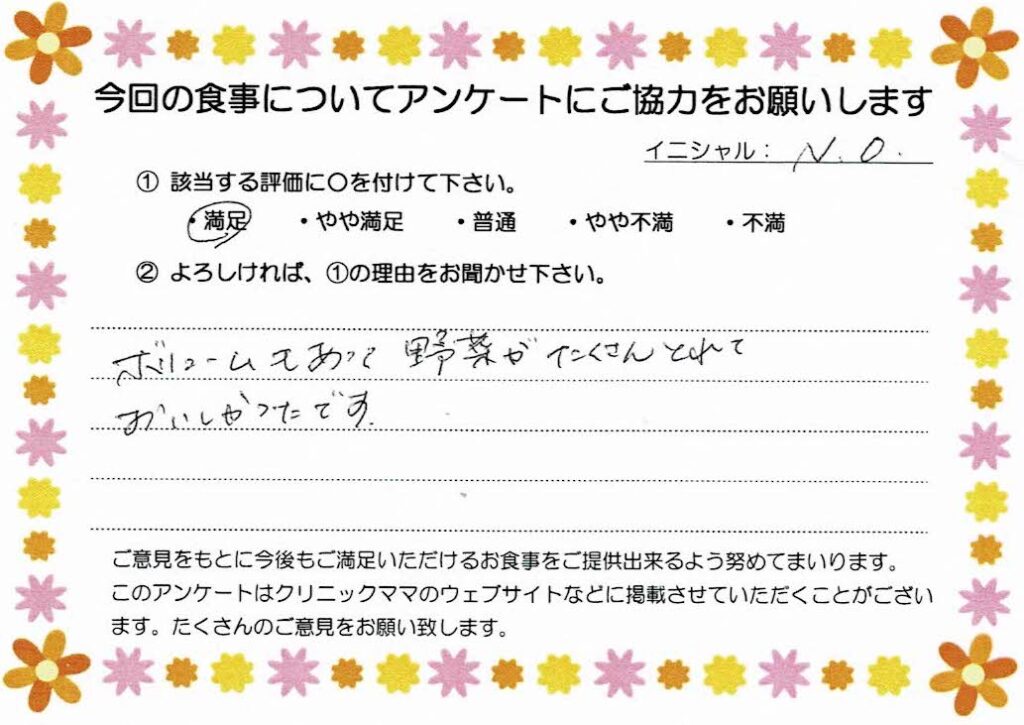 今回の食事についてアンケートにご協力をお願いします
イニシャル： N.O.
① 該当する評価に〇を付けて下さい。
・満足 ・やや満足 ・普通 ・やや不満 ・不満
② よろしければ、①の理由をお聞かせ下さい。
ボリュームもあって 野菜がたくさんとれて
おいしかったです.
ご意見をもとに今後もご満足いただけるお食事をご提供出来るよう努めてまいります。
このアンケートはクリニックママのウェブサイトなどに掲載させていただくことがござい
ます。たくさんのご意見をお願い致します。